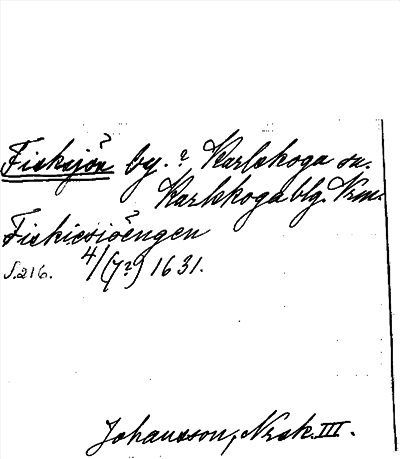 Fisksjön by. ? Karlskoga sn.
Karlskoga blg. Vrm.
Fiskiesiöengen
S. 216. 4/(7?) 1631.
Johansson, Nrsk. III.